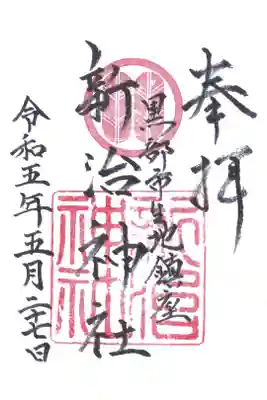 奉拝
黒部市生地鎮座
新治神社
令和五年五月二十七日
新治
神社